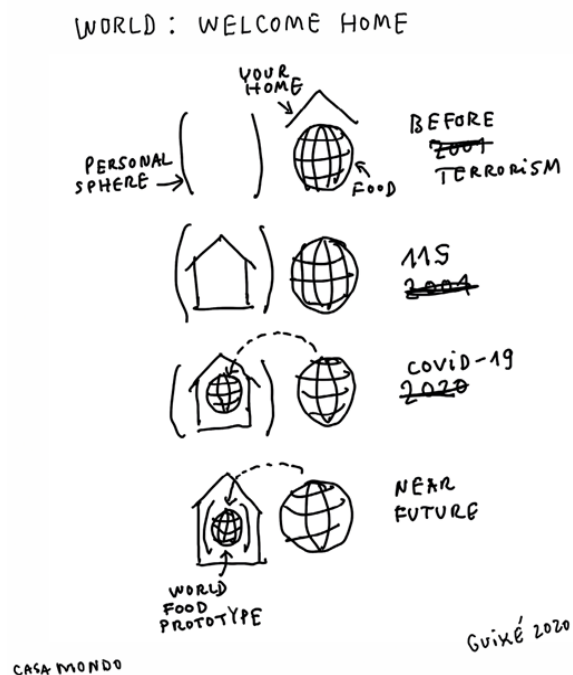 WORLD : WELCOME HOME
YOUR
HOME
PERSONAL
SPHERE
FOOD
BEFORE
2001
TERRORISM
11S
2001
COVID-19
2020
NEAR
FUTURE
WORLD
FOOD
PROTOTYPE
CASA MONDO
GUIXÉ 2020